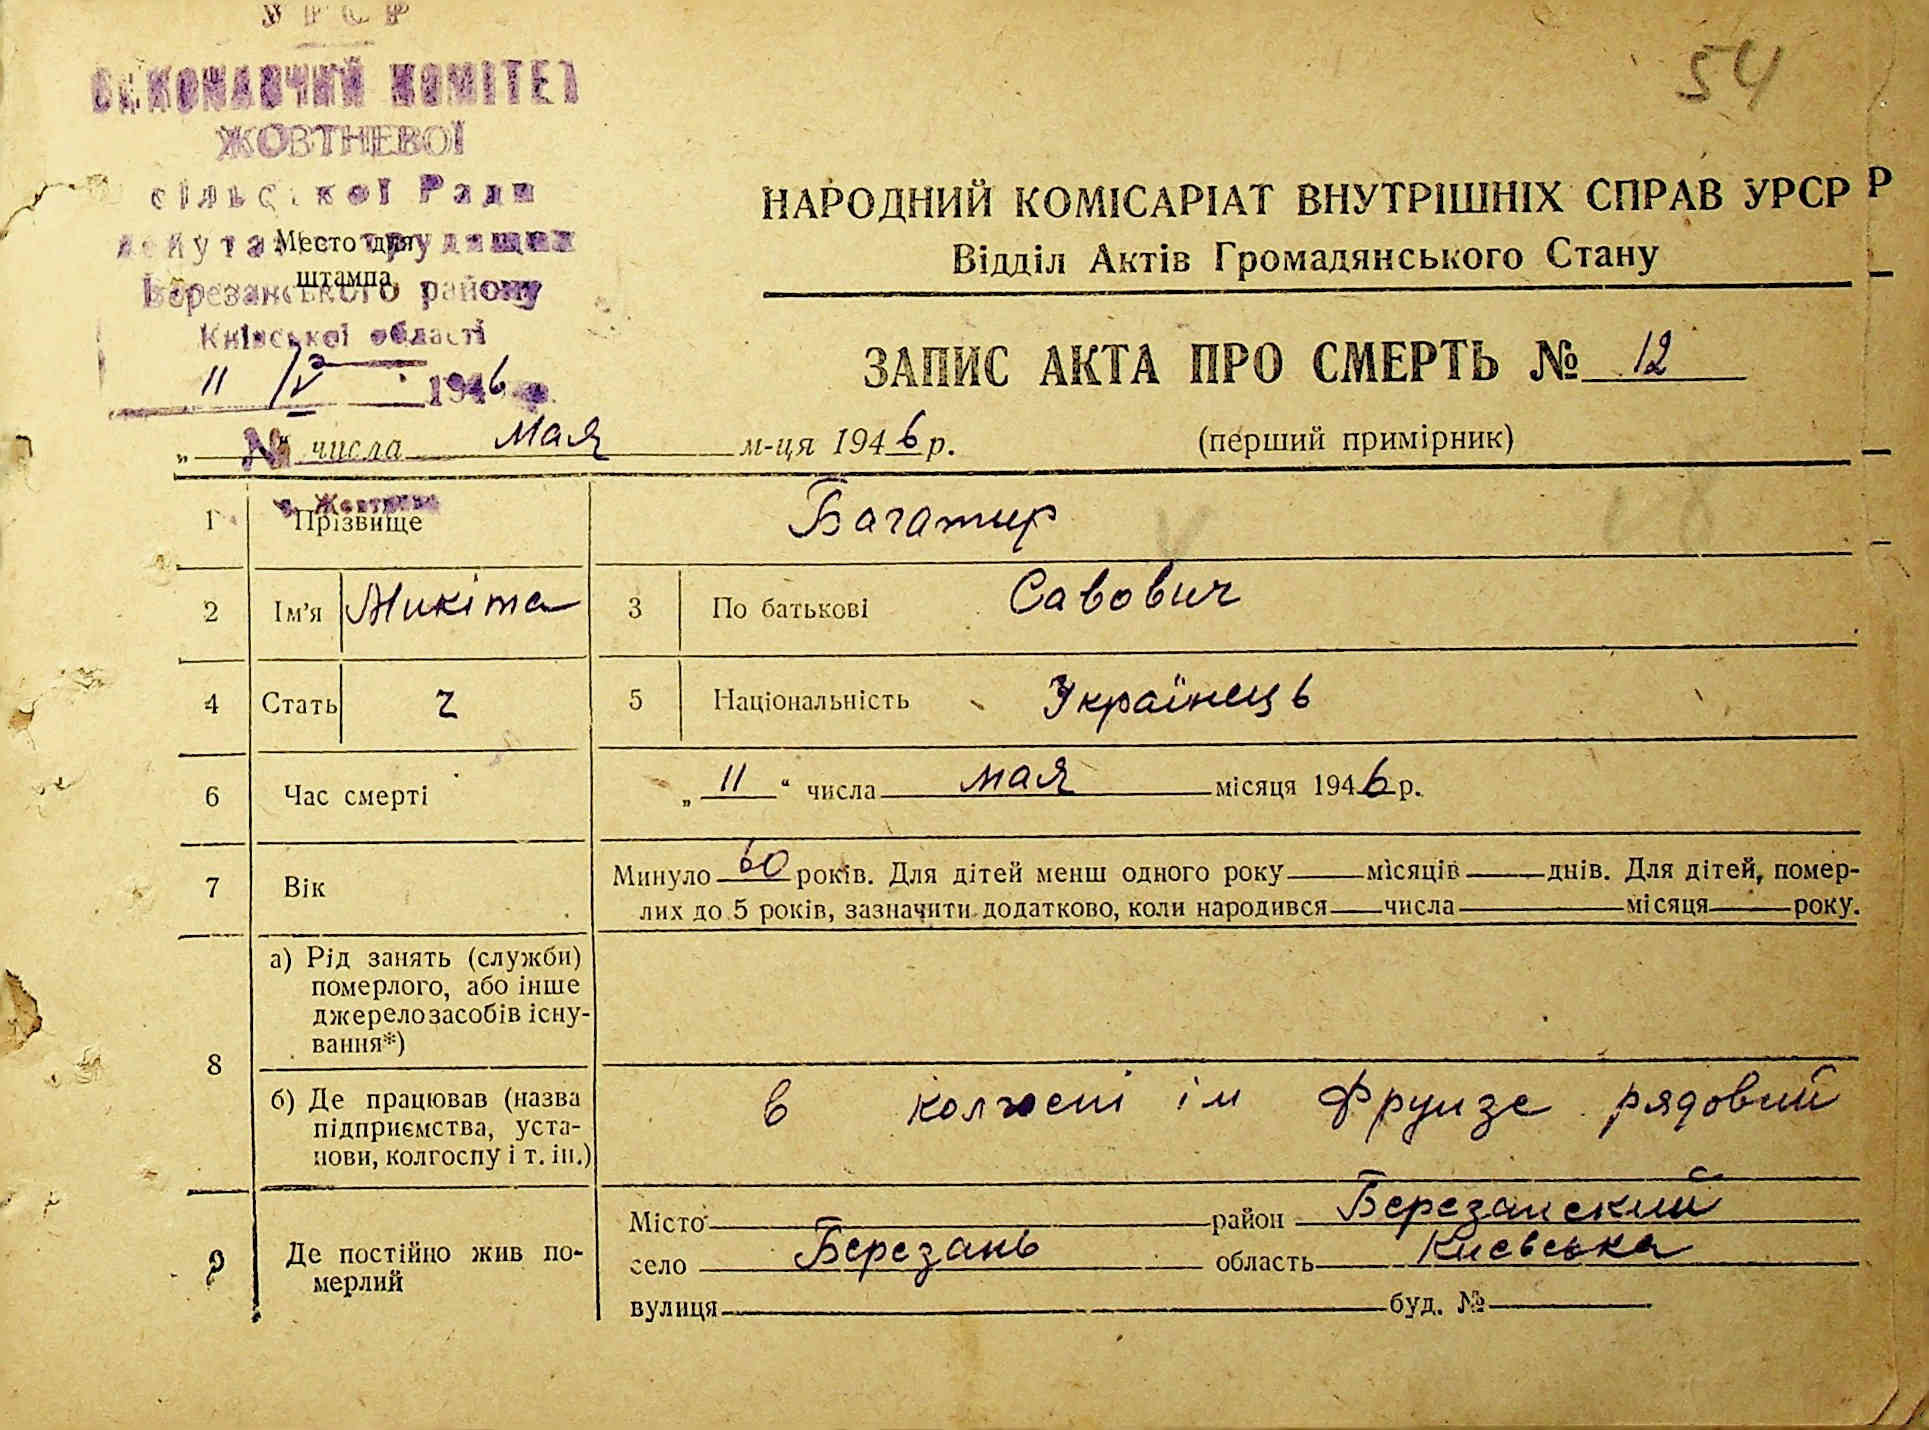 УРСР
54
ВИКОНАВЧИЙ КОМІТЕТ
ЖОВТНЕВОЇ
сільської Ради
депутатів трудящих
Место для
штампа
Березанського району
Київської області
11/V 1946 р.
НАРОДНИЙ КОМІСАРІАТ ВНУТРІШНІХ СПРАВ УРСР Р
Відділ Актів Громадянського Стану
ЗАПИС АКТА ПРО СМЕРТЬ № 12
„ № “ числа мая м-ця 1946 р.
(перший примірник)
с. Жовтневе
1 Прізвище Багатир
2 Ім'я Микіта 3 По батькові Савович
4 Стать ч 5 Національність Українець
6 Час смерті „ 11 “ числа мая місяця 1946 р.
7 Вік Минуло 60 років. Для дітей менш одного року місяців днів. Для дітей, помер-
лих до 5 років, зазначити додатково, коли народився числа місяця року.
8 а) Рід занять (служби)
померлого, або інше
джерело засобів існу-
вання*)
б) Де працював (назва
підприємства, уста-
нови, колгоспу і т. ін.)
в колгоспі ім Фрунзе рядовий
9 Де постійно жив по-
мерлий
Місто район Березанский
село Березань область Києвська
вулиця буд. №